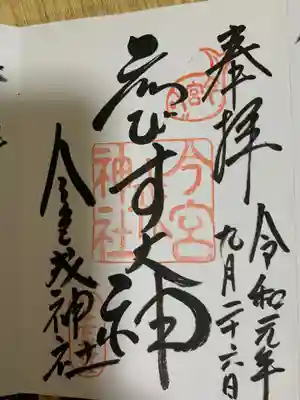 奉拝
令和元年
九月二十六日
ゑびす大神
今宮
戎
神社
今宮戎神社